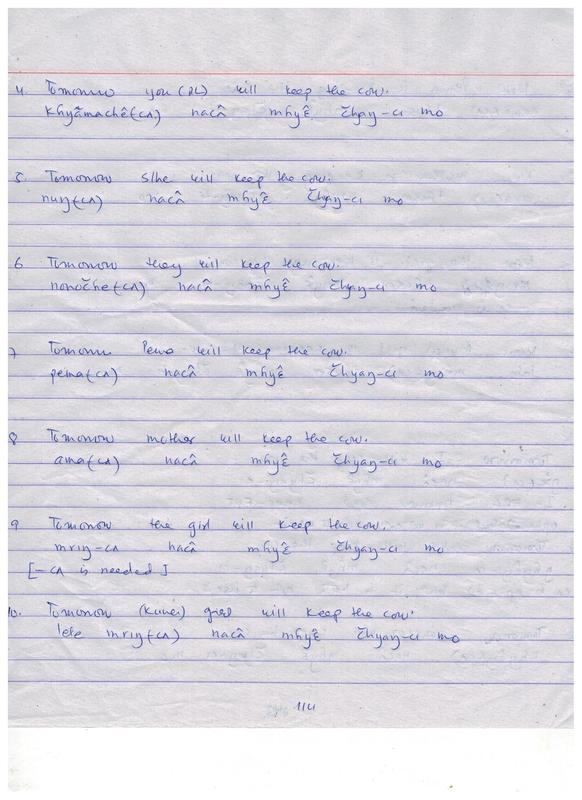 4. Tomorrow you (PL) will keep the cow.
khyãmachê(cʌ) nacâ mhyễ c̆hyaŋ-cɩ mo
5. Tomorrow s/he will keep the cow.
nuŋ(cʌ) nacâ mhyễ c̆hyaŋ-cɩ mo
6 Tomorrow they will keep the cow.
nonoc̆he(cʌ) nacâ mhyễ c̆hyaŋ-cɩ mo
7 Tomorrow Pema will keep the cow.
pema(cʌ) nacâ mhyễ c̆hyaŋ-cɩ mo
8 Tomorrow mother will keep the cow.
ama(cʌ) nacâ mhyễ c̆hyaŋ-cɩ mo
9 Tomorrow the girl will keep the cow.
mrɩŋ-cʌ nacâ mhyễ c̆hyaŋ-cɩ mo
[-cʌ is needed]
10. Tomorrow girl will keep the cow.
mrɩŋ(cʌ) nacâ mhyễ c̆hyaŋ-cɩ mo
114